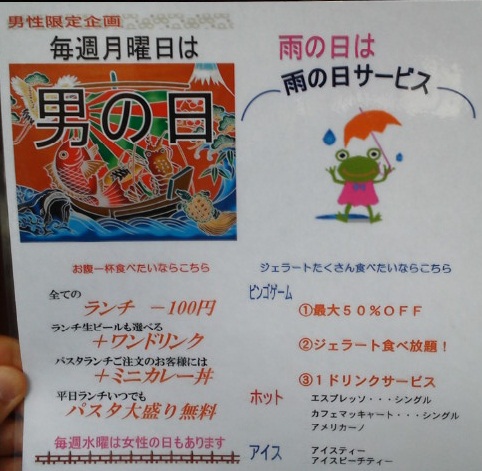 男性限定企画
毎週月曜日は
男の日
お腹一杯食べたいならこちら
全ての
ランチ －100円
ランチ生ビールも選べる
＋ワンドリンク
パスタランチご注文のお客様には
＋ミニカレー丼
平日ランチいつでも
パスタ大盛り無料
毎週水曜は女性の日もあります
雨の日は
雨の日サービス
ジェラートたくさん食べたいならこちら
ビンゴゲーム
①最大５０％ＯＦＦ
②ジェラート食べ放題！
③１ドリンクサービス
ホット
エスプレッソ・・・シングル
カフェマッキャート・・・シングル
アメリカーノ
アイス
アイスティー
アイスピーチティー